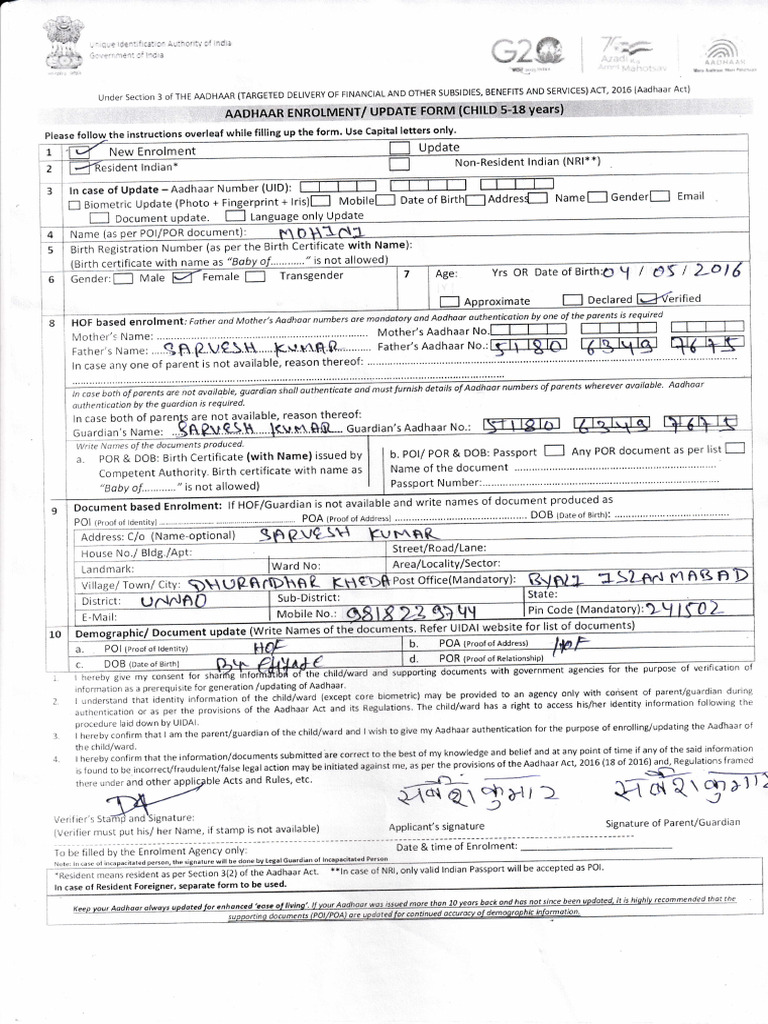 Unique Identification Authority of India
Government of India
G20
Azadi Ka Amrit Mahotsav
AADHAAR
Under Section 3 of THE AADHAAR (TARGETED DELIVERY OF FINANCIAL AND OTHER SUBSIDIES, BENEFITS AND SERVICES) ACT, 2016 (Aadhaar Act)
AADHAAR ENROLMENT/ UPDATE FORM (CHILD 5-18 years)
Please follow the instructions overleaf while filling up the form. Use Capital letters only.
1 New Enrolment Update
2 Resident Indian* Non-Resident Indian (NRI**)
3 In case of Update – Aadhaar Number (UID):
Biometric Update (Photo + Fingerprint + Iris) Mobile Date of Birth Address Name Gender Email
Document update. Language only Update
4 Name (as per POI/POR document): MOHINI
5 Birth Registration Number (as per the Birth Certificate with Name):
(Birth certificate with name as "Baby of............" is not allowed)
6 Gender: Male Female Transgender 7 Age: Yrs OR Date of Birth: 04/05/2016
Approximate Declared Verified
8 HOF based enrolment: Father and Mother's Aadhaar numbers are mandatory and Aadhaar authentication by one of the parents is required
Mother's Name: Mother's Aadhaar No.
Father's Name: SARVESH KUMAR Father's Aadhaar No.: 5180 6349 7675
In case any one of parent is not available, reason thereof:
In case both of parents are not available, guardian shall authenticate and must furnish details of Aadhaar numbers of parents wherever available. Aadhaar
authentication by the guardian is required.
In case both of parents are not available, reason thereof:
Guardian's Name: SARVESH KUMAR Guardian's Aadhaar No.: 5180 6349 7675
Write Names of the documents produced.
a. POR & DOB: Birth Certificate (with Name) issued by
Competent Authority. Birth certificate with name as
"Baby of............" is not allowed)
b. POI/ POR & DOB: Passport Any POR document as per list
Name of the document
Passport Number:
9 Document based Enrolment: If HOF/Guardian is not available and write names of document produced as
POI (Proof of Identity) POA (Proof of Address) DOB (Date of Birth):
Address: C/o (Name-optional) SARVESH KUMAR
House No./ Bldg./Apt: Street/Road/Lane:
Landmark: Ward No: Area/Locality/Sector:
Village/ Town/ City: DHURANDHAR KHEDA Post Office(Mandatory): BYALI ISLANMABAD
District: UNNAO Sub-District: State:
E-Mail: Mobile No.: 9818239744 Pin Code (Mandatory): 241502
10 Demographic/ Document update (Write Names of the documents. Refer UIDAI website for list of documents)
a. POI (Proof of Identity) HOF b. POA (Proof of Address) HOF
c. DOB (Date of Birth) d. POR (Proof of Relationship)
1. I hereby give my consent for sharing information of the child/ward and supporting documents with government agencies for the purpose of verification of
information as a prerequisite for generation /updating of Aadhaar.
2. I understand that identity information of the child/ward (except core biometric) may be provided to an agency only with consent of parent/guardian during
authentication or as per the provisions of the Aadhaar Act and its Regulations. The child/ward has a right to access his/her identity information following the
procedure laid down by UIDAI.
3. I hereby confirm that I am the parent/guardian of the child/ward and I wish to give my Aadhaar authentication for the purpose of enrolling/updating the Aadhaar of
the child/ward.
4. I hereby confirm that the information/documents submitted are correct to the best of my knowledge and belief and at any point of time if any of the said information
is found to be incorrect/fraudulent/false legal action may be initiated against me, as per the provisions of the Aadhaar Act, 2016 (18 of 2016) and, Regulations framed
there under and other applicable Acts and Rules, etc.
सर्वेश कुमार सर्वेश कुमार
Verifier's Stamp and Signature:
(Verifier must put his/ her Name, if stamp is not available) Applicant's signature Signature of Parent/Guardian
To be filled by the Enrolment Agency only: Date & time of Enrolment:
Note: In case of incapacitated person, the signature will be done by Legal Guardian of Incapacitated Person
*Resident means resident as per Section 3(2) of the Aadhaar Act. **In case of NRI, only valid Indian Passport will be accepted as POI.
In case of Resident Foreigner, separate form to be used.
Keep your Aadhaar always updated for enhanced 'ease of living'. If your Aadhaar was issued more than 10 years back and has not since been updated, it is highly recommended that the
supporting documents (POI/POA) are updated for continued accuracy of demographic information.